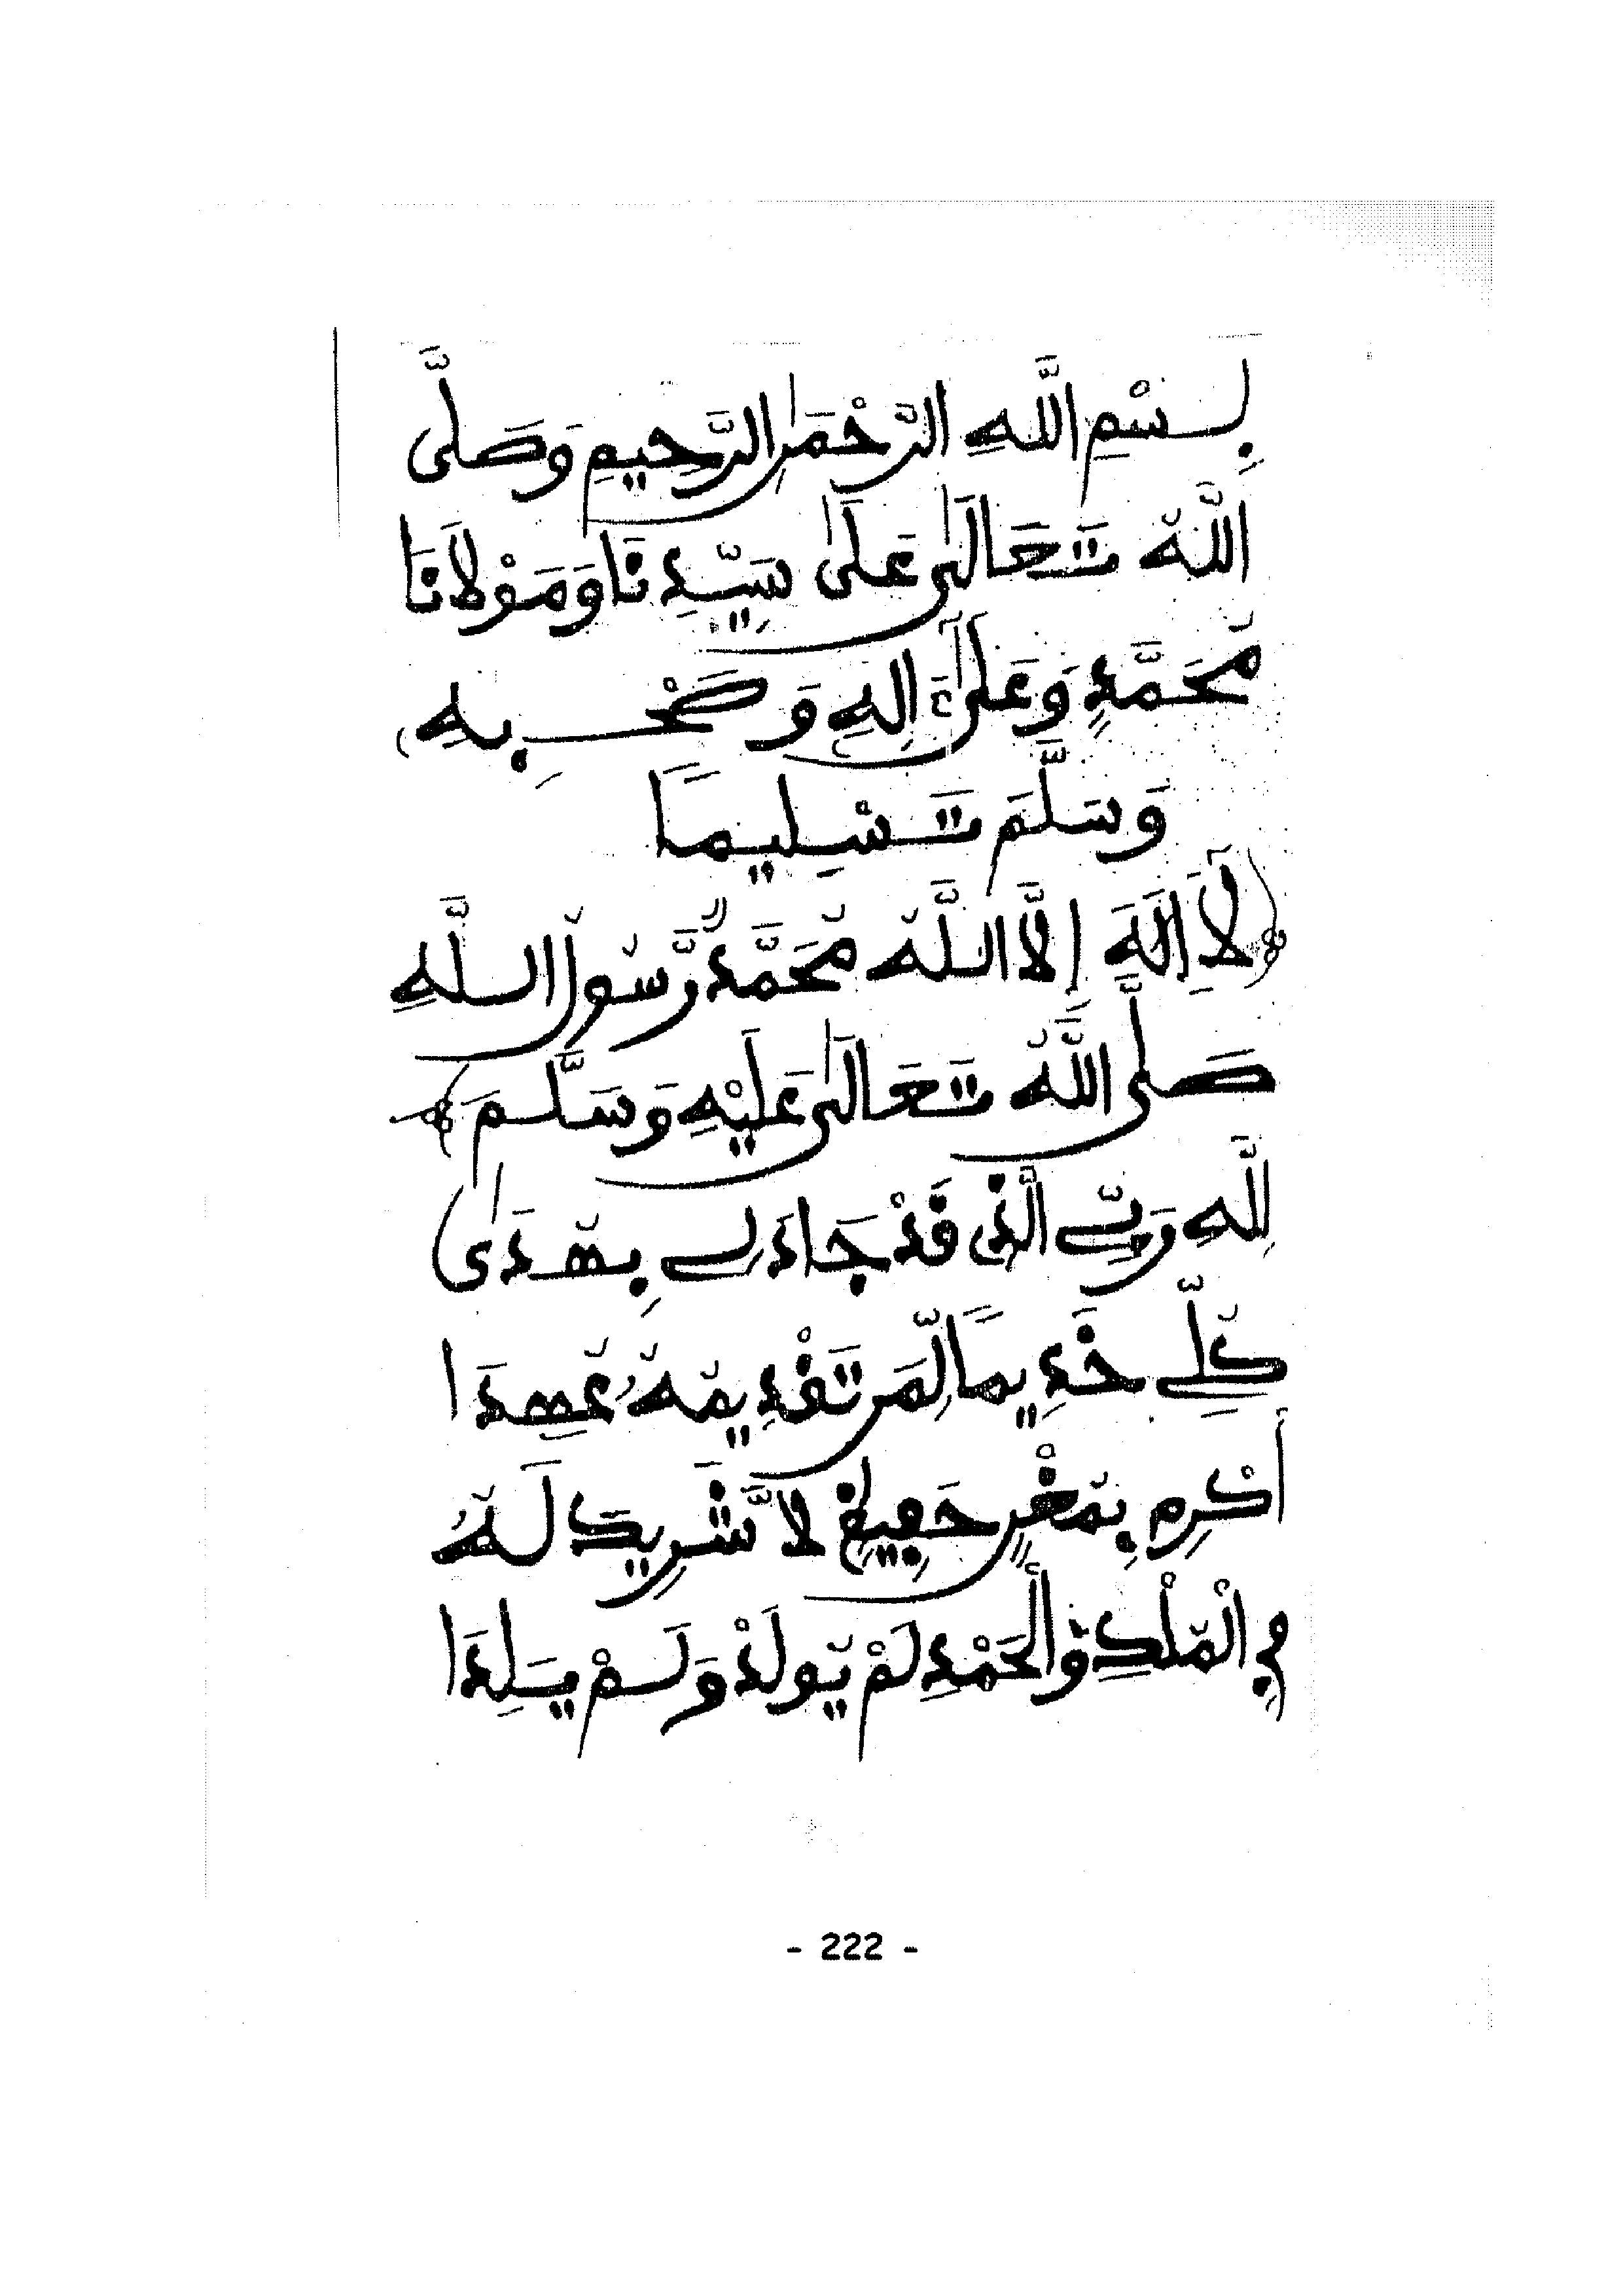 بِسْمِ اللَّهِ الرَّحْمَٰنِ الرَّحِيمِ وَصَلَّى
اللَّهُ تَعَالَىٰ عَلَىٰ سَيِّدِنَا وَمَوْلَانَا
مُحَمَّدٍ وَعَلَىٰ ءَالِهِ وَصَحْبِهِ
وَسَلَّمَ تَسْلِيمًا
﴿لَا إِلَٰهَ إِلَّا اللَّهُ مُحَمَّدٌ رَّسُولُ اللَّهِ
صَلَّى اللَّهُ تَعَالَىٰ عَلَيْهِ وَسَلَّمَ﴾
لِلَّهِ رَبِّي الَّذِي قَدْ جَادَ لِي بِهُدَىٰ
كُلِّي خَدِيمًا لِّمَن تَقْدِيمُهُ عُهِدَا
أَكْرِمْ بِمُغْنٍ حَقِيقِيٍّ لَا شَرِيكَ لَهُ
فِي الْمُلْكِ وَالْحَمْدِ لَمْ يُولَدْ وَلَمْ يَلِدَا
- 222 -